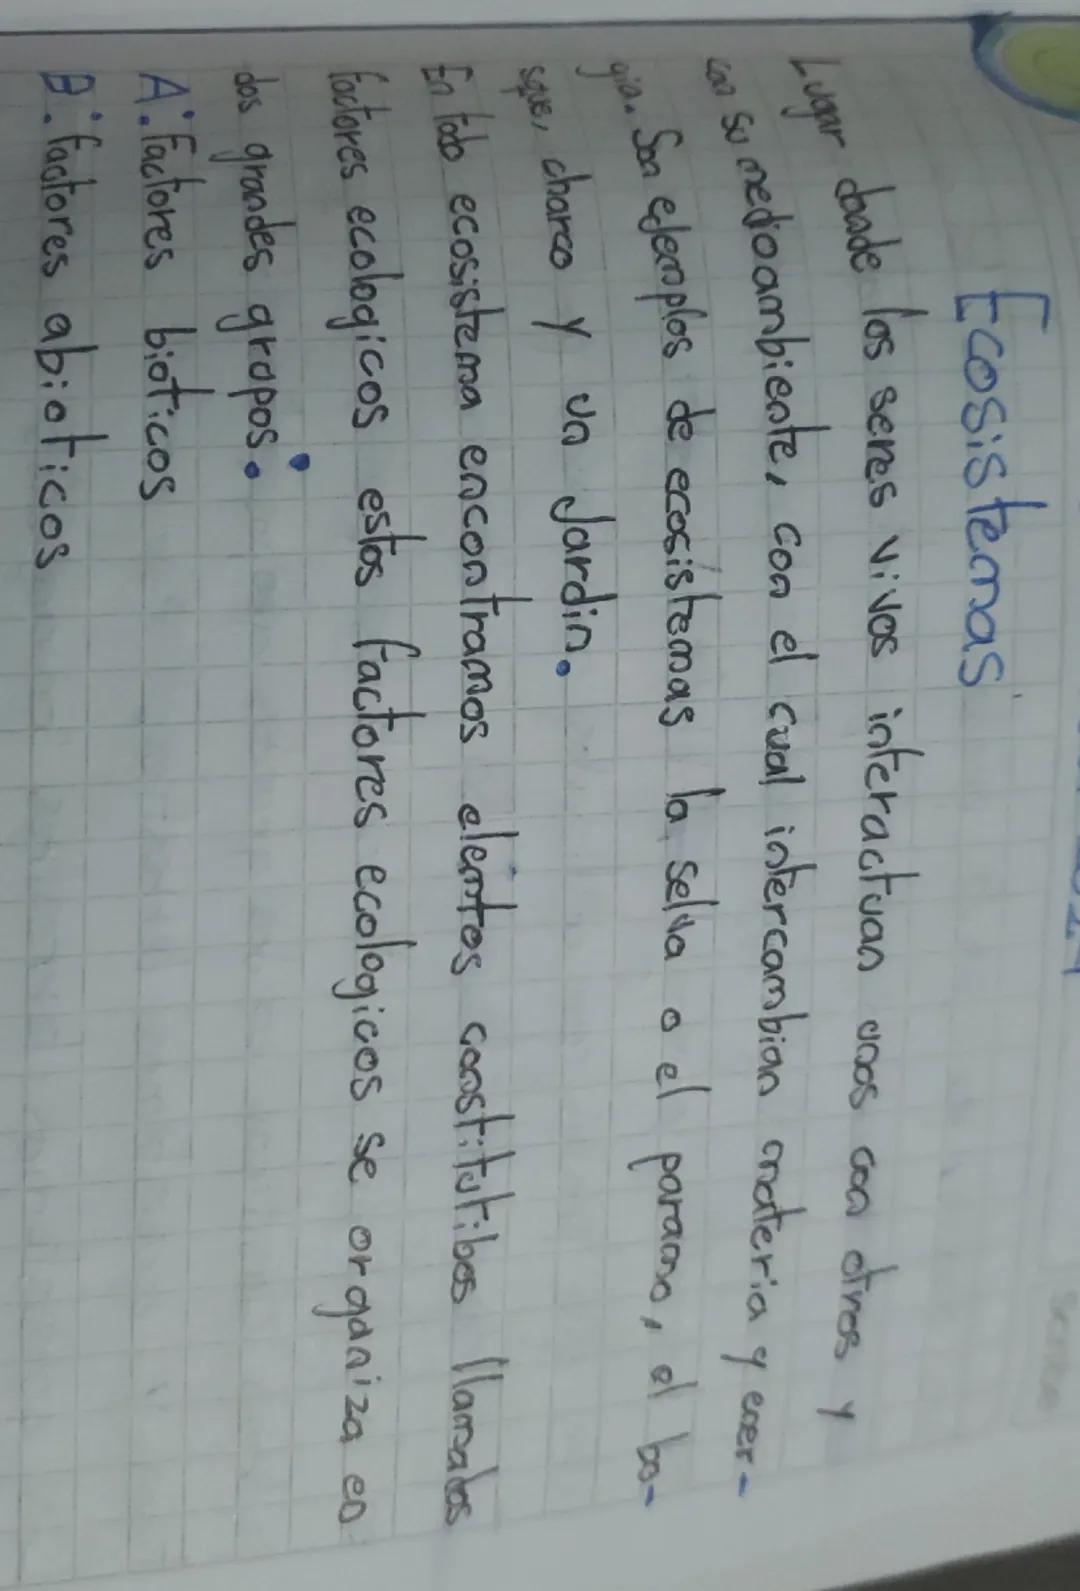 Ecosistemas
Lugar donde los seres vivos interactuan unos con otros y
con su medioambiente, con el cual intercambian materia y ener-
gia. Son ejemplos de ecosistemas la selva o el paramo, el bo-
sque, charco y un Jardin.
En todo ecosistema encontramos elemtos constitutibos llamados
factores ecologicos estos factores ecologicos se organiza en
dos grandes grupos:
A: Factores bioticos
B: factores abioticos